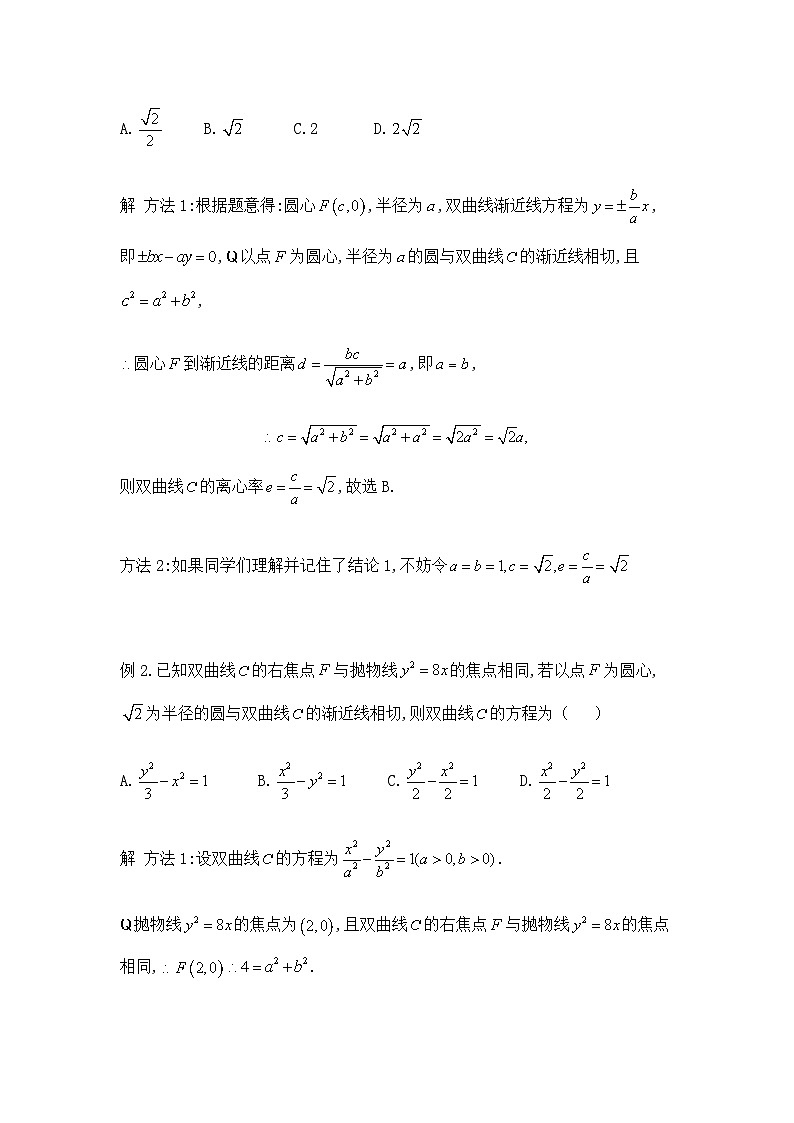 A. \frac{\sqrt{2}}{2} B. \sqrt{2} C.2 D. 2\sqrt{2}
解 方法1:根据题意得:圆心F(c,0),半径为a,双曲线渐近线方程为y=±\frac{b}{a}x,
即±bx−ay=0,Q以点F为圆心,半径为a的圆与双曲线C的渐近线相切,且
c²=a²+b²,
∴圆心F到渐近线的距离d=\frac{bc}{\sqrt{a²+b²}}=a,即a=b,
∴c=\sqrt{a²+b²}=\sqrt{a²+a²}=\sqrt{2a²}=\sqrt{2}a,
则双曲线C的离心率e=\frac{c}{a}=\sqrt{2},故选B.
方法2:如果同学们理解并记住了结论1,不妨令a=b=1,c=\sqrt{2},e=\frac{c}{a}=\sqrt{2}
例2.已知双曲线C的右焦点F与抛物线y²=8x的焦点相同,若以点F为圆心,
\sqrt{2}为半径的圆与双曲线C的渐近线相切,则双曲线C的方程为( )
A. \frac{y²}{3}−x²=1 B. \frac{x²}{3}−y²=1 C. \frac{y²}{2}−\frac{x²}{2}=1 D. \frac{x²}{2}−\frac{y²}{2}=1
解 方法1:设双曲线C的方程为\frac{x²}{a²}−\frac{y²}{b²}=1(a>0,b>0).
Q抛物线y²=8x的焦点为(2,0),且双曲线C的右焦点F与抛物线y²=8x的焦点
相同,∴F(2,0)∴4=a²+b².